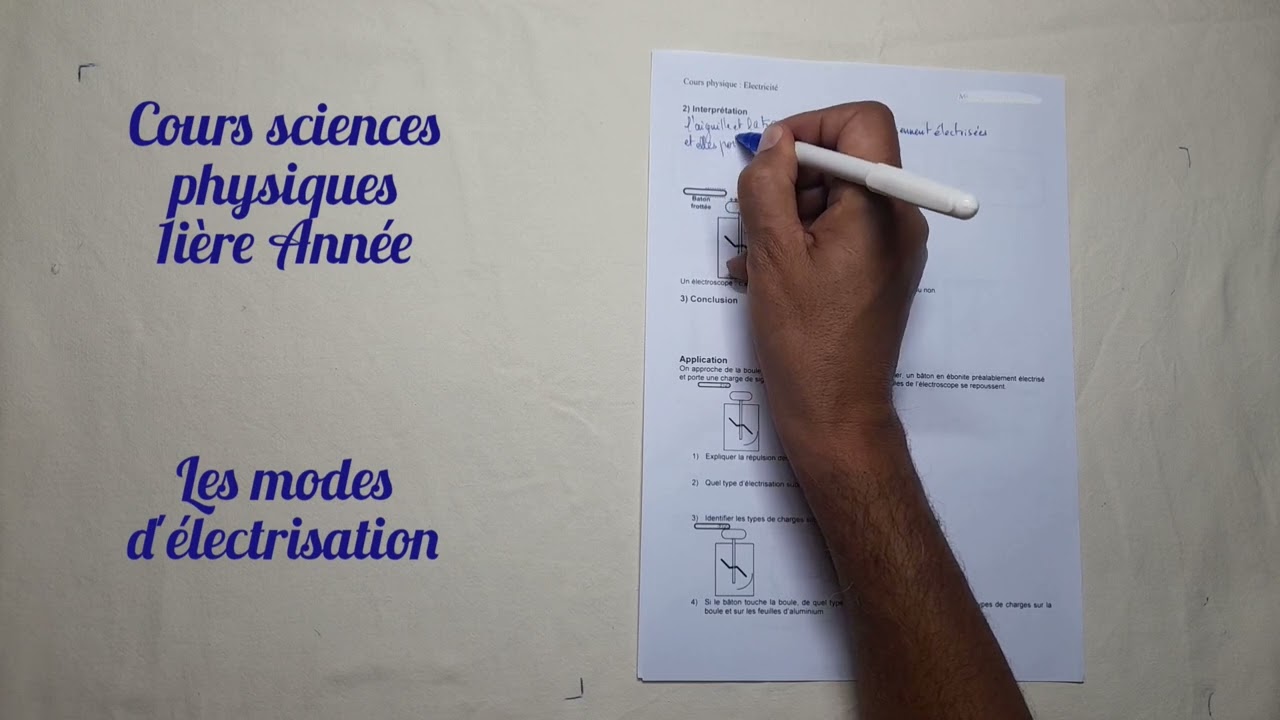 Cours sciences
physiques
1ière Année
Les modes
d'électrisation
Cours physique : Electricité
2) Interprétation
l'aiguille et ennement électrisées
et elles
Baton
frottée
Un électroscope u non.
3) Conclusion
Application
On approche de la boule er, un bâton en ébonite préalablement électrisé
et porte une charge de sig es de l'électroscope se repoussent.
1) Expliquer la répulsion
2) Quel type d'électrisation
3) Identifier les types de charges
4) Si le bâton touche la boule, de quel type pes de charges sur la
boule et sur les feuilles d'aluminium